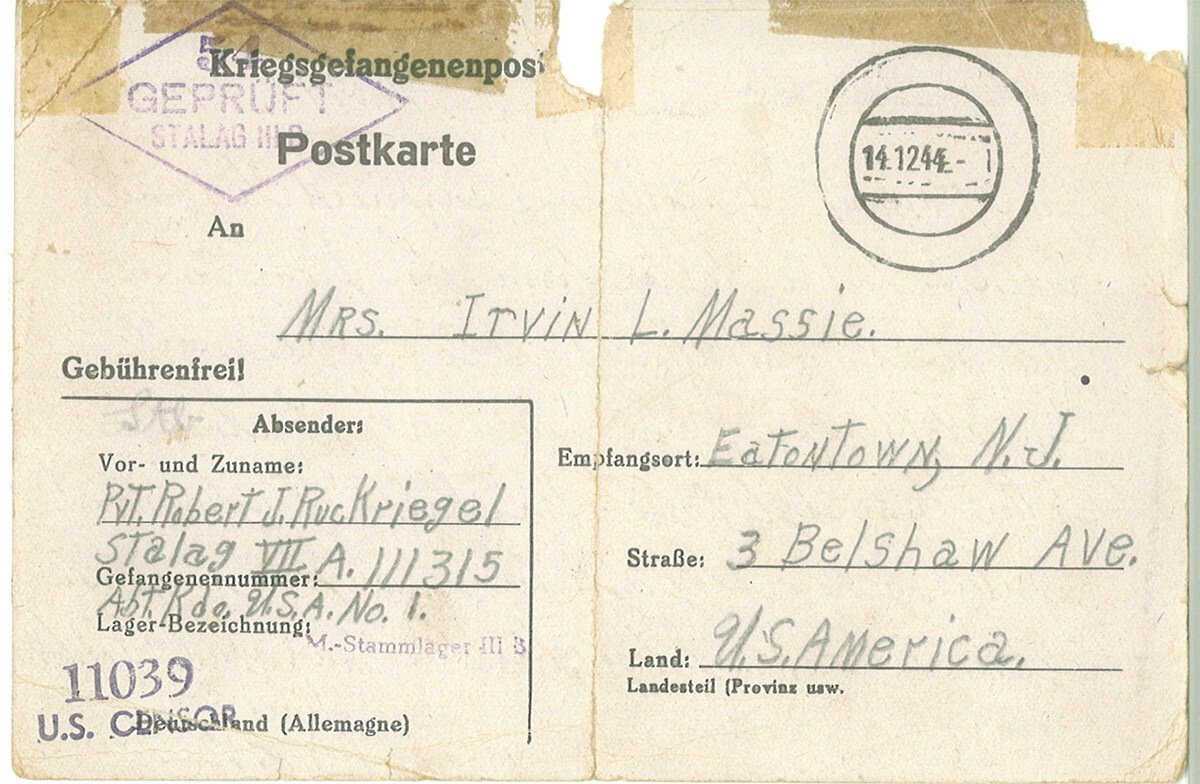 54
Kriegsgefangenenpos
GEPRÜFT
STALAG III B
Postkarte
14.12.44.-1
An
Mrs. Irvin L. Massie.
Gebührenfrei!
Absender:
Vor- und Zuname:
Pvt. Robert J. Ruckriegel
Stalag VII A. 111315
Gefangenennummer:
Abt. Kdo. U.S.A. No. 1.
Lager-Bezeichnung:
M.-Stammlager III B
11039
U.S. CENSOR
Deutschland (Allemagne)
Empfangsort: Eatontown, N.J.
Straße: 3 Belshaw Ave.
Land: U.S. America.
Landesteil (Provinz usw.